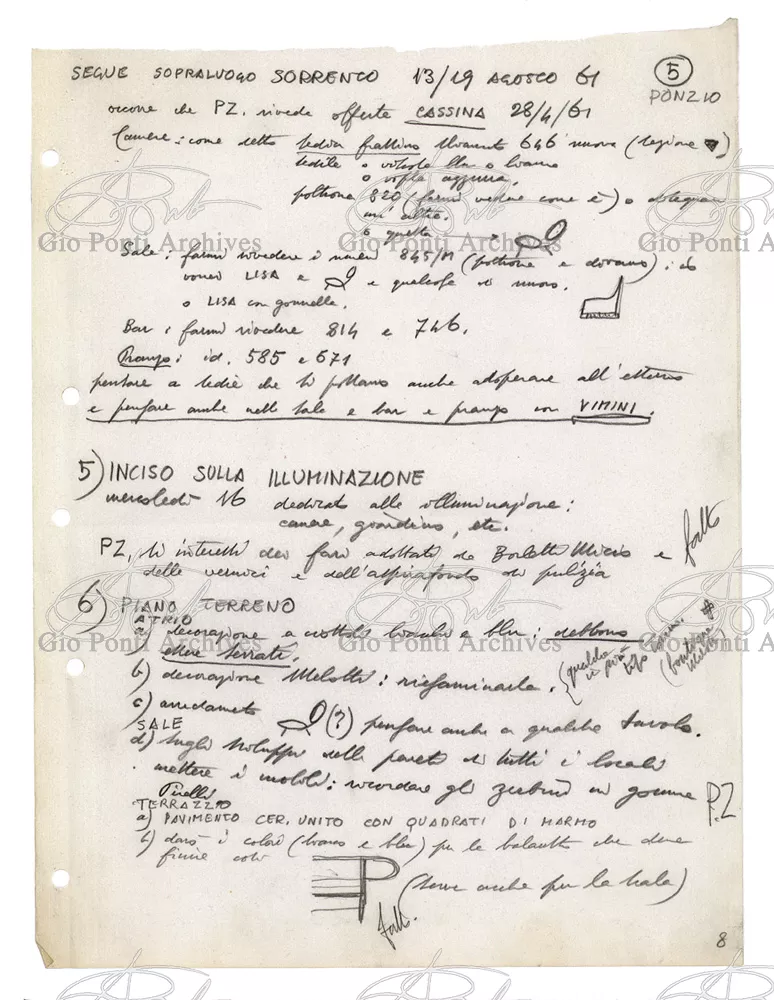 SEGUE SOPRALUOGO SORRENTO 13/19 AGOSTO 61
5
PONZIO
occorre che PZ. rivede offerte CASSINA 28/4/61
Camere: come detto sedia frattino 646 nuova (
sedile o vipla blu o bianco
o vipla azzurra,
poltrona 820 (farmi vedere come è) o disegnare
un'altra.
o questa
Sale: farmi rivedere i numeri 845/M (poltrone e divano);
vorrei LISA e e qualcosa di nuovo.
o LISA con gonnella.
Bar: farmi rivedere 814 e 746.
Pranzo: id. 585 e 671
pensare a sedie che si possano anche adoperare all'esterno
e pensare anche nelle sale e bar e pranzo con VIMINI.
5) INCISO SULLA ILLUMINAZIONE
mercoledì 16 dedicato alla illuminazione:
camere, giardino, etc.
PZ, si interessi dei fari adottati da Borletti e
delle vernici e dell'aspirafondo di pulizia
fatto
6) PIANO TERRENO
ATRIO
a) decorazione a ciottoli bianchi e blu; debbono
essere serrati.
b) decorazione Melotti: riesaminarla.
(qualche
c) arredamento
SALE
(?) pensare anche a qualche tavolo.
d) sugli sviluppi delle pareti di tutti i locali
mettere i mobili; ricordare gli zerbini in gomma
Pirelli
P.Z
TERRAZZO
a) PAVIMENTO CER. UNITO CON QUADRATI DI MARMO
b) darò i colori (bianco e blu) per le balaustre che deve
finire così
(serve anche per la scala)
fatto.
8
Gio Ponti Archives
Gio Ponti Archives
Gio Ponti A
Gio Ponti Archives
Gio Ponti Archives
Gio Ponti A